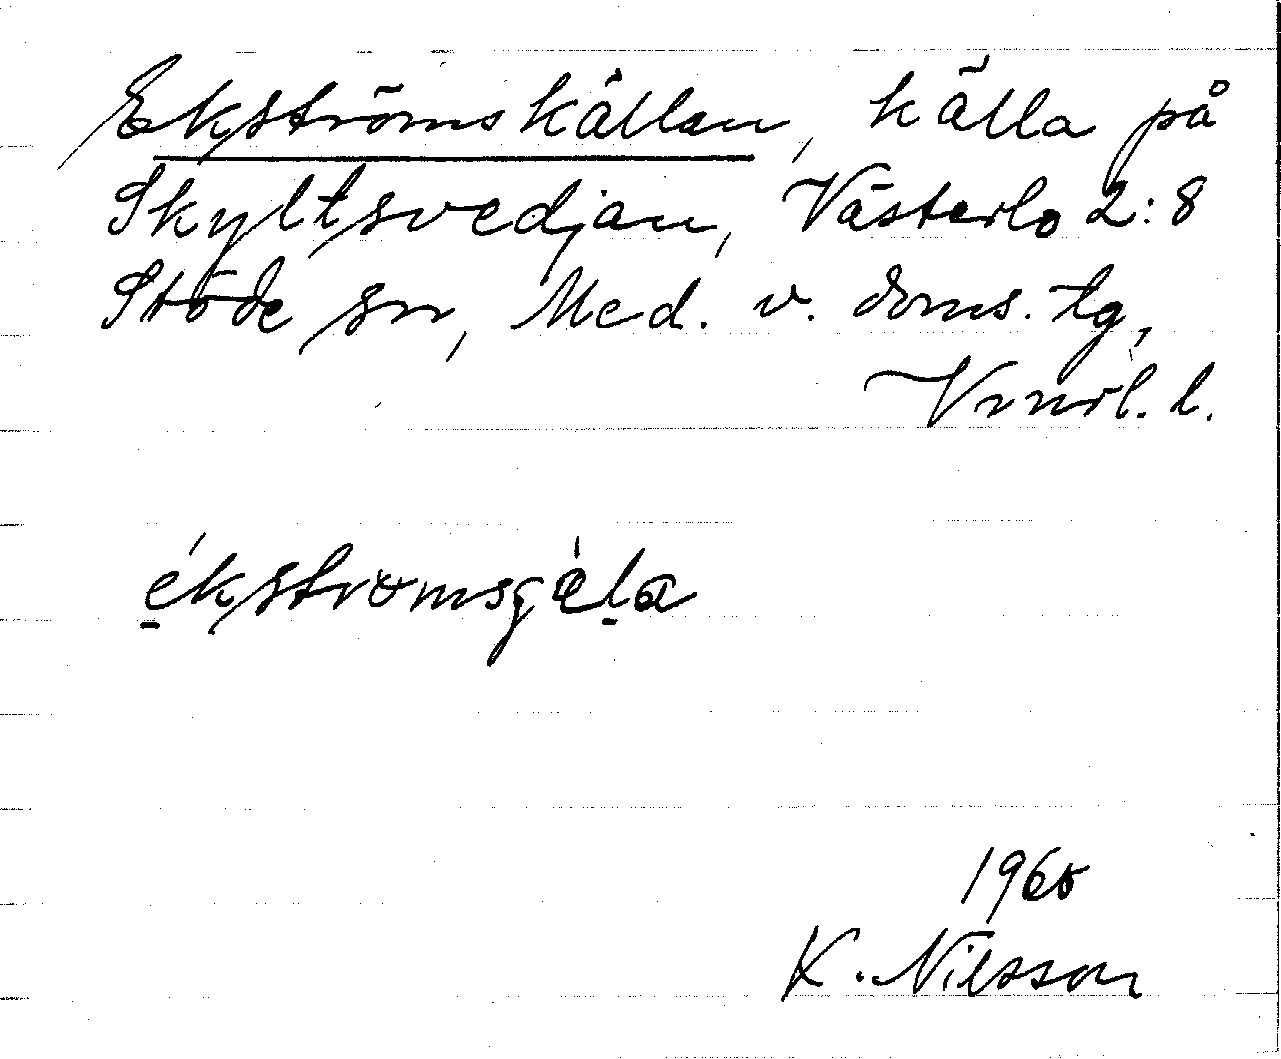 Ekströmskällan, källa på
Skyltsvedjan, Västerlo 2:8
Stöde sn, Med. v. doms. tg,
Vnrl. l.
ékstromsgèla
1965
K. Nilsson